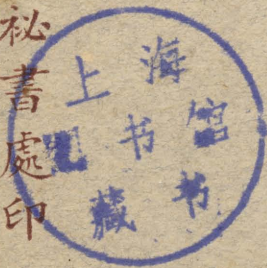 祕書處印
上海
图书馆
藏书